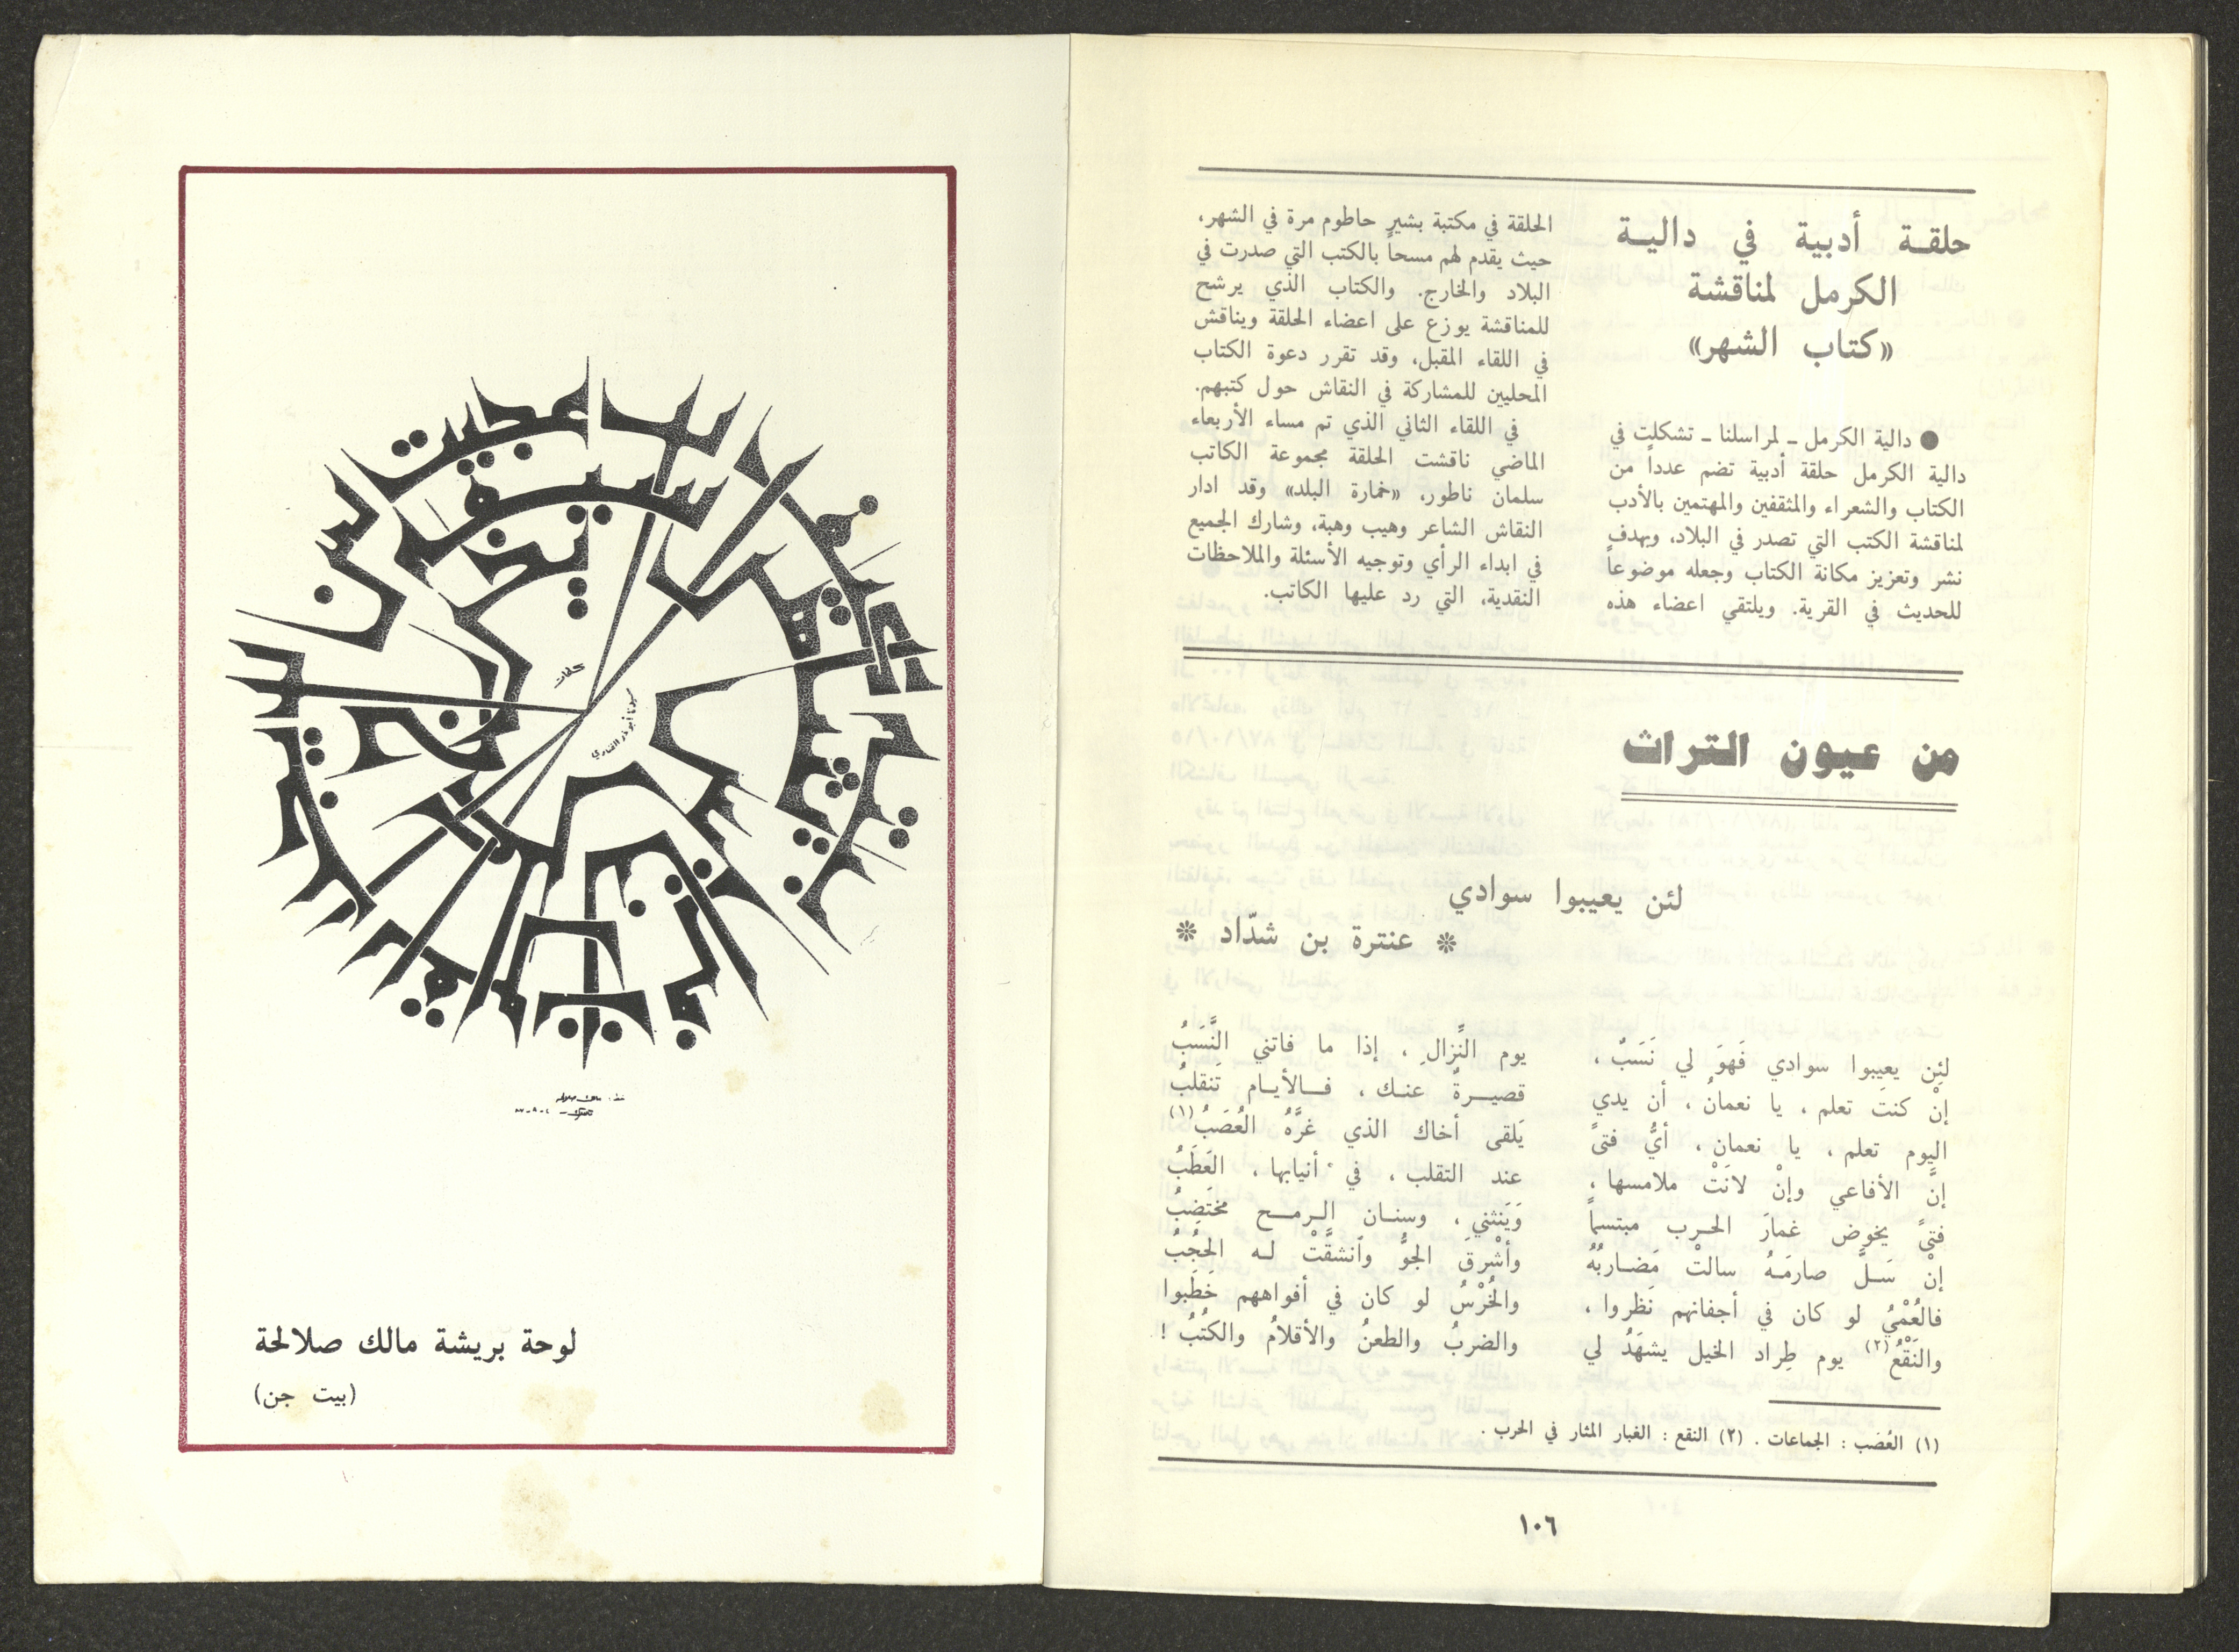 حلقـة أدبية في داليـة
الكرمل لمناقشة
«كتاب الشهر»
● دالية الكرمل ـ لمراسلنا ـ تشكلت في
دالية الكرمل حلقة أدبية تضم عدداً من
الكتاب والشعراء والمثقفين والمهتمين بالأدب
لمناقشة الكتب التي تصدر في البلاد، وبهدف
نشر وتعزيز مكانة الكتاب وجعله موضوعاً
للحديث في القرية. ويلتقي اعضاء هذه
الحلقة في مكتبة بشير حاطوم مرة في الشهر،
حيث يقدم لهم مسحاً بالكتب التي صدرت في
البلاد والخارج. والكتاب الذي يرشح
للمناقشة يوزع على اعضاء الحلقة ويناقش
في اللقاء المقبل، وقد تقرر دعوة الكتاب
المحليين للمشاركة في النقاش حول كتبهم.
في اللقاء الثاني الذي تم مساء الأربعاء
الماضي ناقشت الحلقة مجموعة الكاتب
سلمان ناطور، «خمارة البلد» وقد ادار
النقاش الشاعر وهيب وهبة، وشارك الجميع
في ابداء الرأي وتوجيه الأسئلة والملاحظات
النقدية، التي رد عليها الكاتب.
من عيون التراث
لئن يعيبوا سوادي
* عنترة بن شدّاد *
لئِن يعيَبوا سوادي فَهوَ لي نَسَبٌ ، يوم النِّزالِ ، إذا ما فاتني النَّسَبُ
إنْ كنتَ تعلم ، يا نعمانُ ، أن يدي قصيـرةٌ عنـك ، فـالأيـام تَنقلبُ
اليوم تعلم ، يا نعمان ، أيُّ فتىً يَلقى أخاك الذي غرَّهُ العُصَبُ(١)
إنَّ الأفاعي وإنْ لانَتْ ملامسها ، عند التقلب ، في أنيابها ، العَطَبُ
فتىً يخوض غمارَ الحـرب مبتسماً وَيَنثني ، وسنـان الـرمـح مختَضِبُ
إنْ سَـلَّ صارمَـهُ سالتْ مَضـاربُهُ وأشْرقَ الجوُّ وآنشقَّتْ لـه الحجُبُ
فالعُمْيُ لو كان في أجفانهم نَظروا ، والخُرْسُ لو كان في أفواههم خَطَبوا
والنَقْعُ(٢) يوم طِراد الخيل يشهَدُ لي والضربُ والطعنُ والأقلامُ والكتُبُ !
(١) العُصب : الجماعات . (٢) النقع : الغبار المثار في الحرب .
١٠٦
لوحة بريشة مالك صلالحة
(بيت جن)